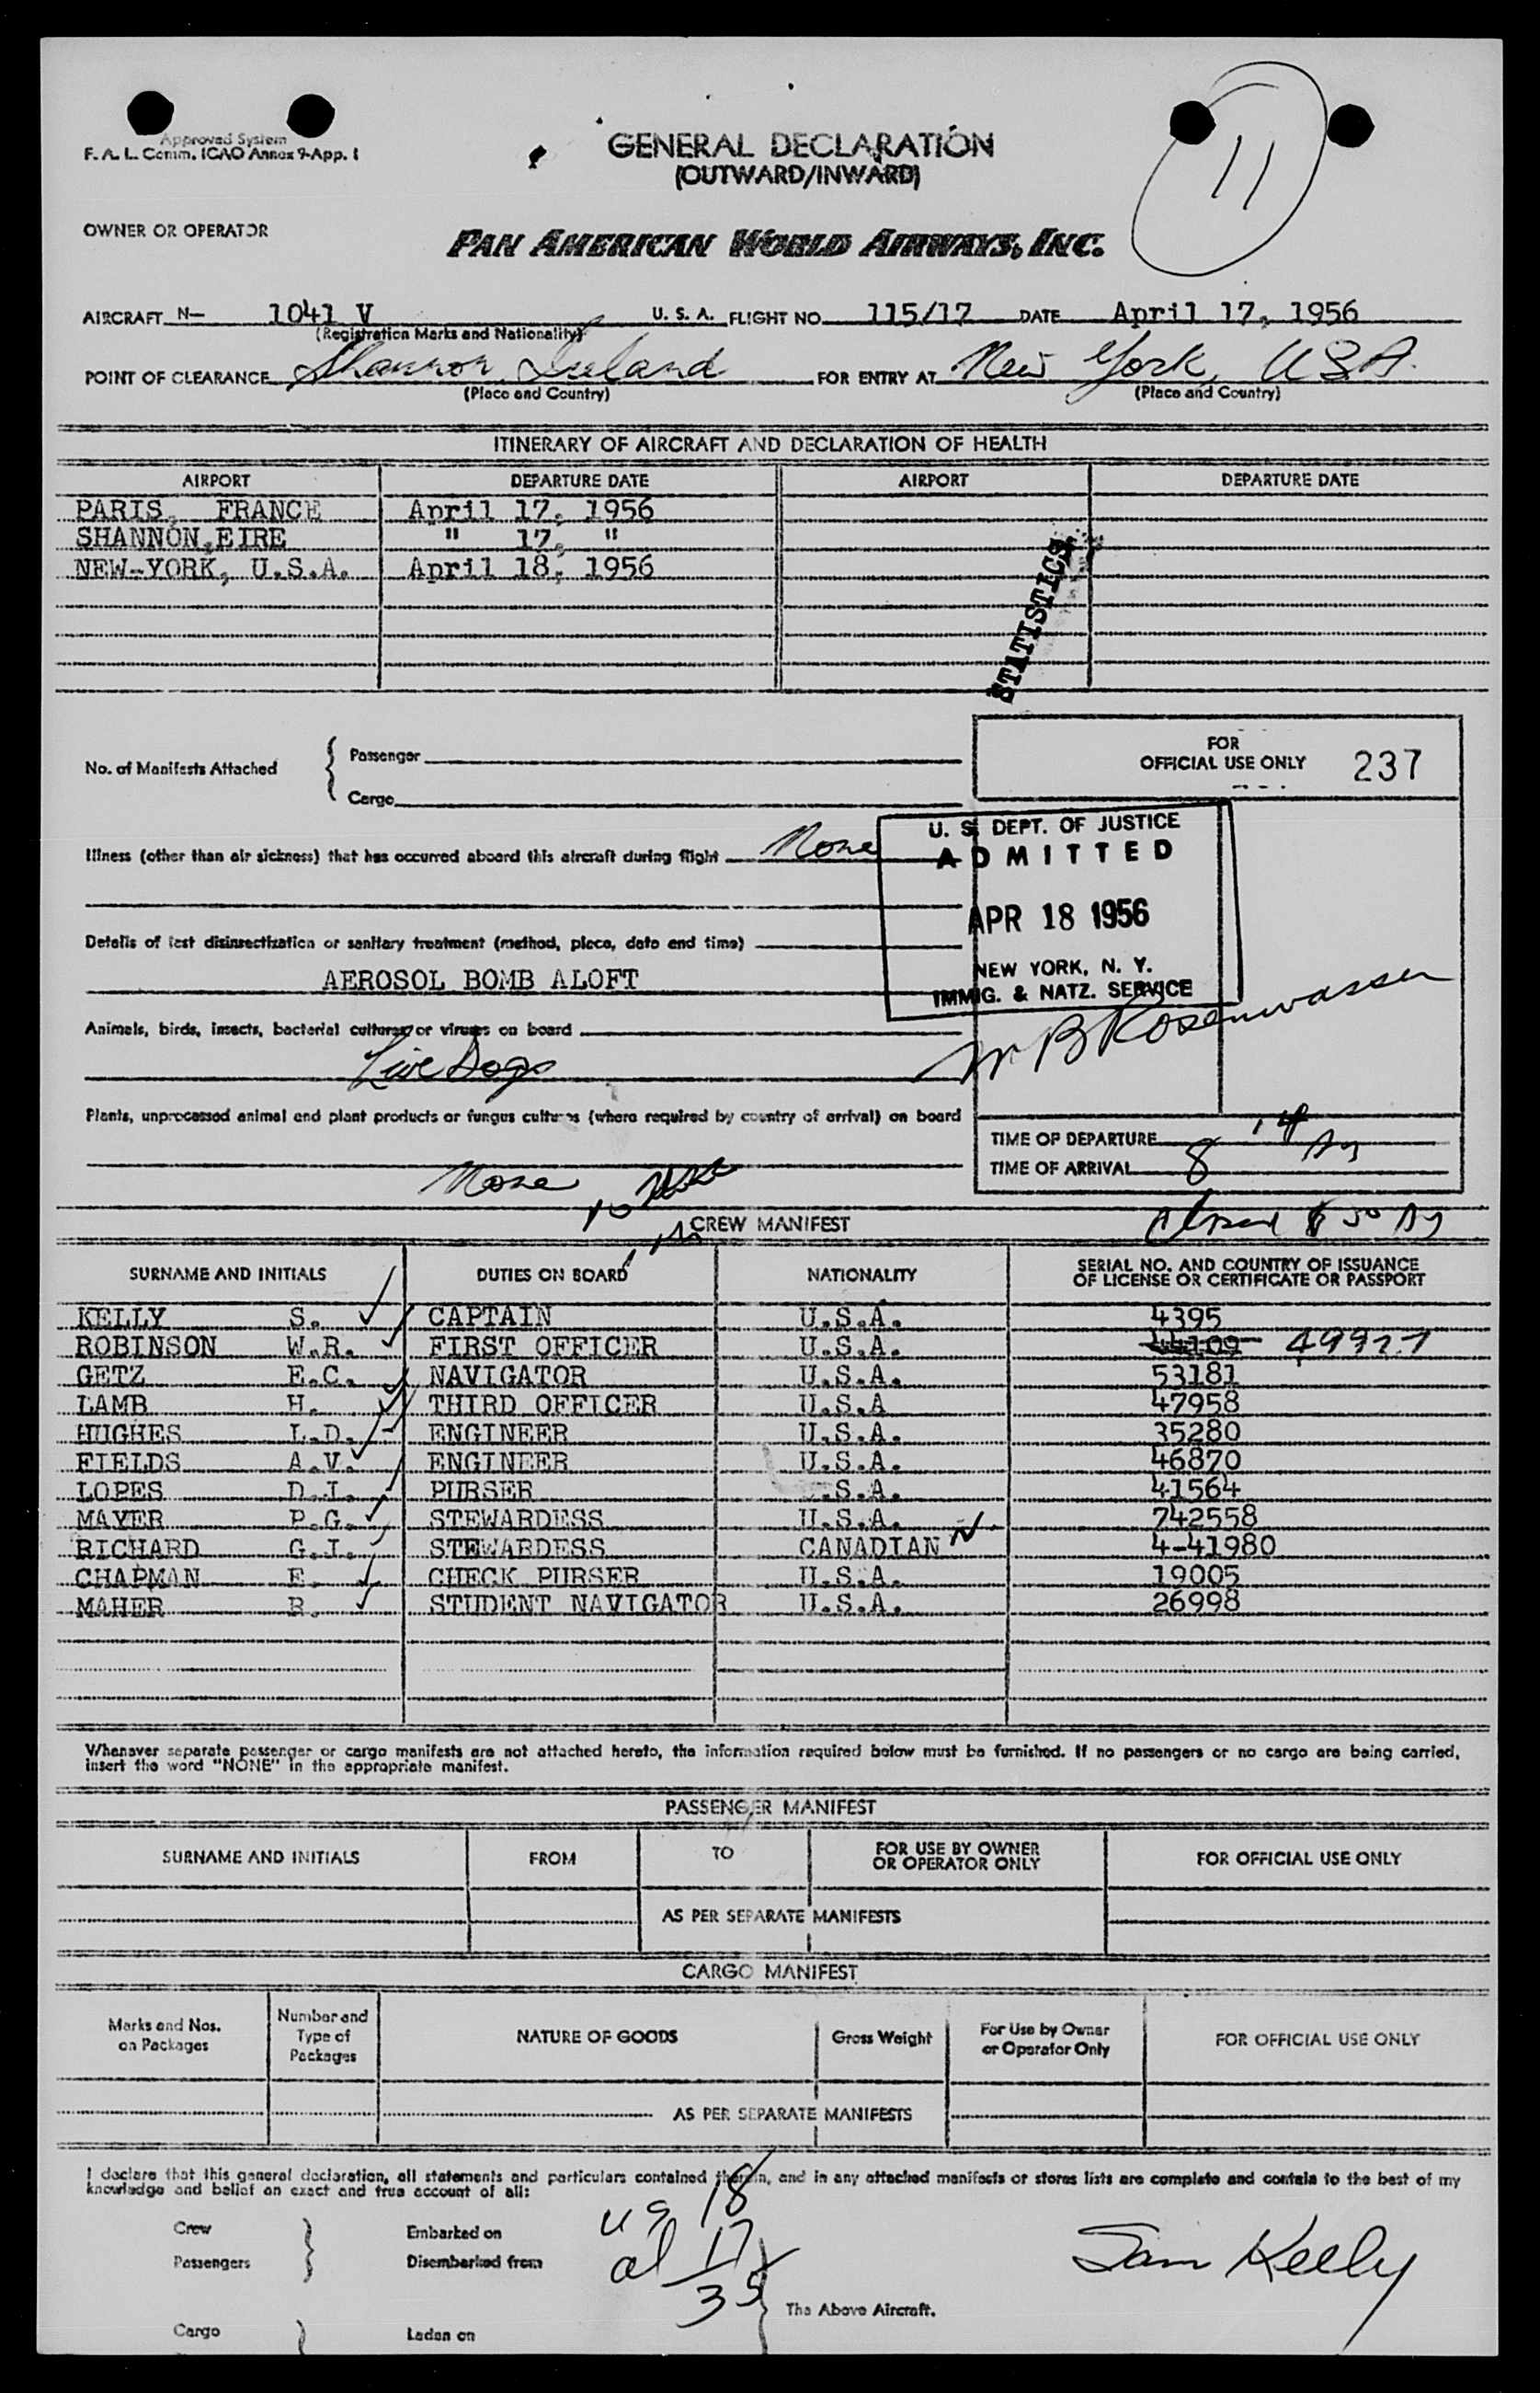 Approved System
F. A. L. Comm. ICAO Annex 9-App. 1
GENERAL DECLARATION
(OUTWARD/INWARD)
11
OWNER OR OPERATOR
PAN AMERICAN WORLD AIRWAYS, INC.
AIRCRAFT N- 1041 V U. S. A. FLIGHT NO. 115/17 DATE April 17, 1956
(Registration Marks and Nationality)
POINT OF CLEARANCE Shannon Ireland FOR ENTRY AT New York, USA.
(Place and Country) (Place and Country)
ITINERARY OF AIRCRAFT AND DECLARATION OF HEALTH
AIRPORT DEPARTURE DATE AIRPORT DEPARTURE DATE
PARIS, FRANCE April 17, 1956
SHANNON, EIRE " 17, "
NEW-YORK, U.S.A. April 18, 1956
STATISTICS
No. of Manifests Attached { Passenger
Cargo
FOR
OFFICIAL USE ONLY 237
Illness (other than air sickness) that has occurred aboard this aircraft during flight None
U. S. DEPT. OF JUSTICE
ADMITTED
APR 18 1956
NEW YORK, N. Y.
IMMIG. & NATZ. SERVICE
Details of last disinsectization or sanitary treatment (method, place, date and time)
AEROSOL BOMB ALOFT
Animals, birds, insects, bacterial cultures or viruses on board
Live Dogs
Rosenwasser
Plants, unprocessed animal and plant products or fungus cultures (where required by country of arrival) on board
None
TIME OF DEPARTURE
TIME OF ARRIVAL 8
CREW MANIFEST
SURNAME AND INITIALS DUTIES ON BOARD NATIONALITY SERIAL NO. AND COUNTRY OF ISSUANCE
OF LICENSE OR CERTIFICATE OR PASSPORT
KELLY S. CAPTAIN U.S.A. 4395
ROBINSON W.R. FIRST OFFICER U.S.A. 44109
GETZ E.C. NAVIGATOR U.S.A. 53181
LAMB H. THIRD OFFICER U.S.A 47958
HUGHES L.D. ENGINEER U.S.A. 35280
FIELDS A.V. ENGINEER U.S.A. 46870
LOPES D.I. PURSER .S.A. 41564
MAYER P.G. STEWARDESS U.S.A. 742558
RICHARD G.I. STEWARDESS CANADIAN 4-41980
CHAPMAN E. CHECK PURSER U.S.A. 19005
MAHER R. STUDENT NAVIGATOR U.S.A. 26998
Whenever separate passenger or cargo manifests are not attached hereto, the information required below must be furnished. If no passengers or no cargo are being carried,
insert the word "NONE" in the appropriate manifest.
PASSENGER MANIFEST
SURNAME AND INITIALS FROM TO FOR USE BY OWNER
OR OPERATOR ONLY FOR OFFICIAL USE ONLY
AS PER SEPARATE MANIFESTS
CARGO MANIFEST
Marks and Nos.
on Packages
Number and
Type of
Packages
NATURE OF GOODS
Gross Weight
For Use by Owner
or Operator Only
FOR OFFICIAL USE ONLY
AS PER SEPARATE MANIFESTS
I declare that this general declaration, all statements and particulars contained therein, and in any attached manifests or stores lists are complete and contain to the best of my
knowledge and belief an exact and true account of all:
Crew
Passengers
Embarked on
Disembarked from
us 18
al 17
35
Sam Kelly
The Above Aircraft.
Cargo Laden on